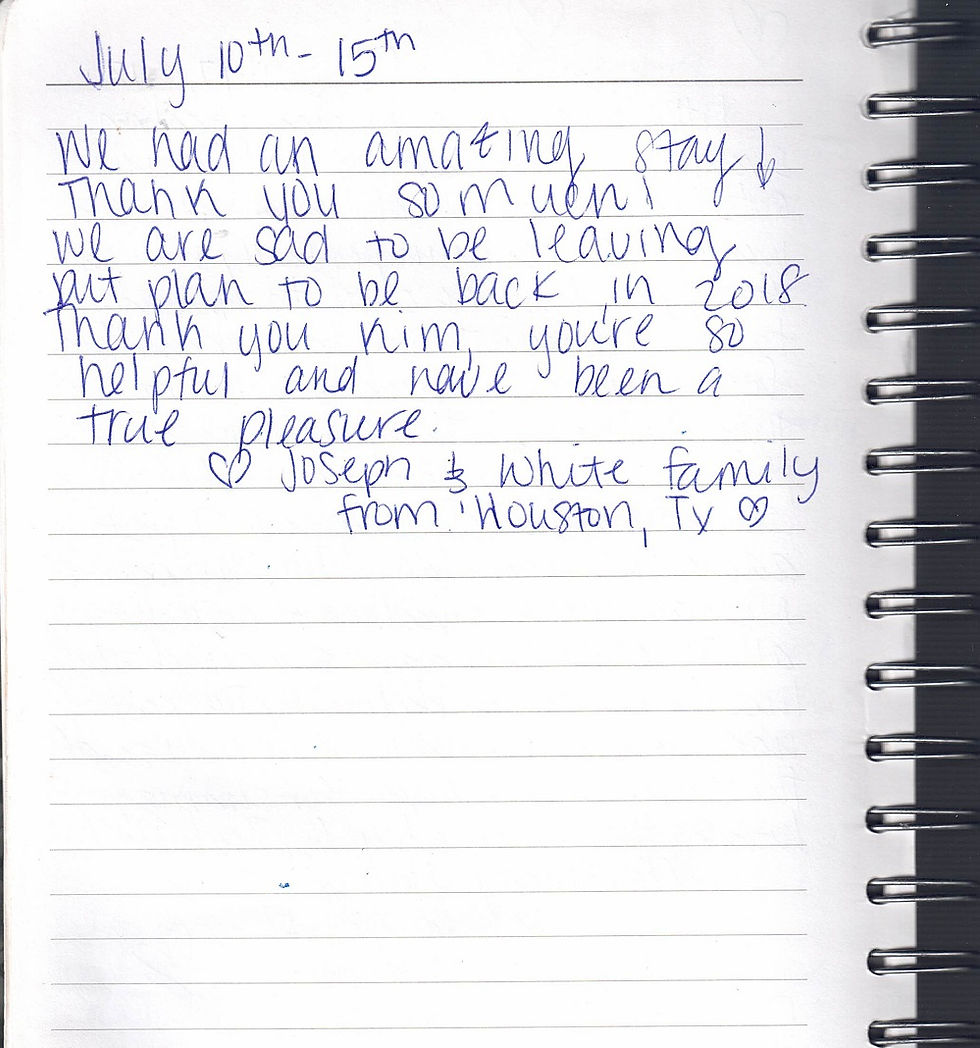 July 10th - 15th
We had an amazing stay!
Thank you so much!
we are sad to be leaving
but plan to be back in 2018
Thank you Kim, you're so
helpful and have been a
true pleasure.
♡ Joseph & White family
from Houston, TX ♡